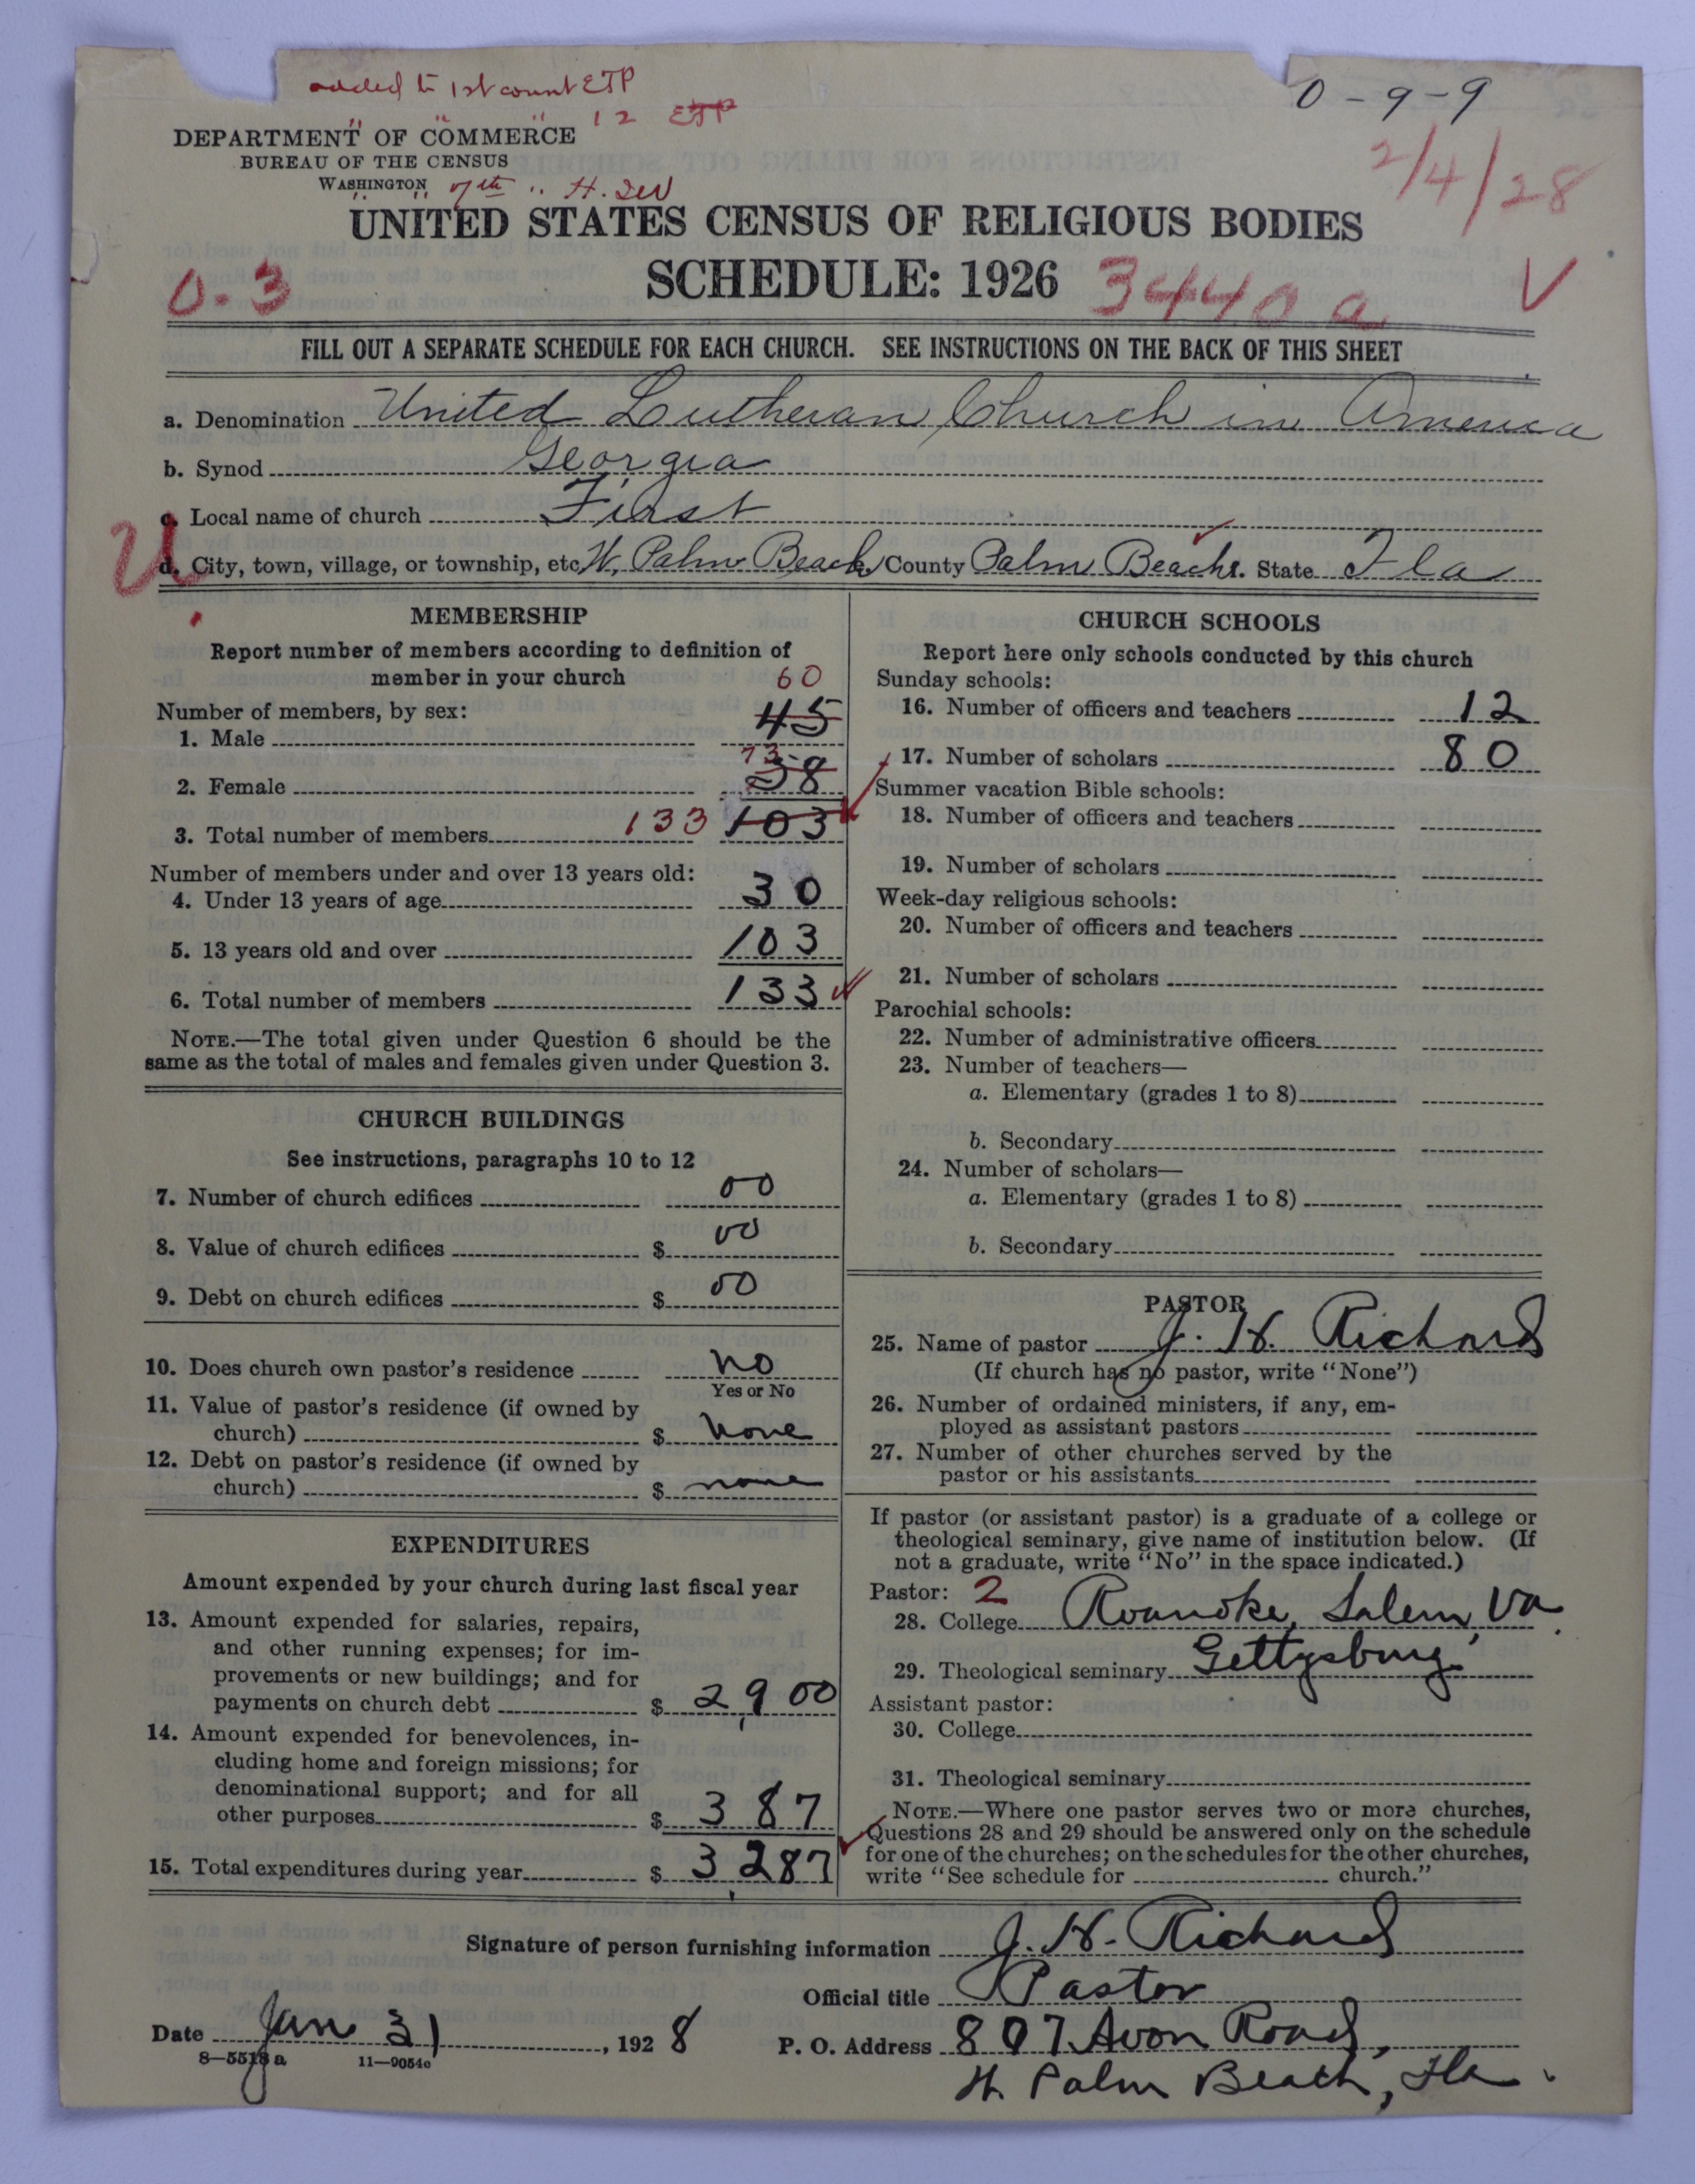 added to 1st count ETP
0-9-9
" " " 12 ETP
DEPARTMENT OF COMMERCE
BUREAU OF THE CENSUS
WASHINGTON
2/4/28
UNITED STATES CENSUS OF RELIGIOUS BODIES
SCHEDULE: 1926
0-3
3440a
FILL OUT A SEPARATE SCHEDULE FOR EACH CHURCH. SEE INSTRUCTIONS ON THE BACK OF THIS SHEET
a. Denomination United Lutheran Church in America
b. Synod Georgia
c. Local name of church First
U
d. City, town, village, or township, etc. W. Palm Beach County Palm Beach State Fla
MEMBERSHIP
Report number of members according to definition of
member in your church
60
Number of members, by sex:
1. Male 45
73
2. Female 58
3. Total number of members 133 103
Number of members under and over 13 years old:
4. Under 13 years of age 30
5. 13 years old and over 103
6. Total number of members 133
NOTE.—The total given under Question 6 should be the
same as the total of males and females given under Question 3.
CHURCH BUILDINGS
See instructions, paragraphs 10 to 12
7. Number of church edifices 00
8. Value of church edifices $ 00
9. Debt on church edifices $ 00
10. Does church own pastor's residence no
Yes or No
11. Value of pastor's residence (if owned by
church) $ none
12. Debt on pastor's residence (if owned by
church) $ none
EXPENDITURES
Amount expended by your church during last fiscal year
13. Amount expended for salaries, repairs,
and other running expenses; for im-
provements or new buildings; and for
payments on church debt $ 2,900
14. Amount expended for benevolences, in-
cluding home and foreign missions; for
denominational support; and for all
other purposes $ 387
15. Total expenditures during year $ 3,287
CHURCH SCHOOLS
Report here only schools conducted by this church
Sunday schools:
16. Number of officers and teachers 12
17. Number of scholars 80
Summer vacation Bible schools:
18. Number of officers and teachers
19. Number of scholars
Week-day religious schools:
20. Number of officers and teachers
21. Number of scholars
Parochial schools:
22. Number of administrative officers
23. Number of teachers—
a. Elementary (grades 1 to 8)
b. Secondary
24. Number of scholars—
a. Elementary (grades 1 to 8)
b. Secondary
PASTOR
25. Name of pastor J. H. Richard
(If church has no pastor, write "None")
26. Number of ordained ministers, if any, em-
ployed as assistant pastors
27. Number of other churches served by the
pastor or his assistants
If pastor (or assistant pastor) is a graduate of a college or
theological seminary, give name of institution below. (If
not a graduate, write "No" in the space indicated.)
Pastor: 2
28. College Roanoke, Salem, Va.
29. Theological seminary Gettysburg
Assistant pastor:
30. College
31. Theological seminary
NOTE.—Where one pastor serves two or more churches,
Questions 28 and 29 should be answered only on the schedule
for one of the churches; on the schedules for the other churches,
write "See schedule for church."
Signature of person furnishing information J. H. Richard
Official title Pastor
Date Jan 31, 1928
P. O. Address 807 Avon Road,
W. Palm Beach, Fla.
8—5518a 11—9054c